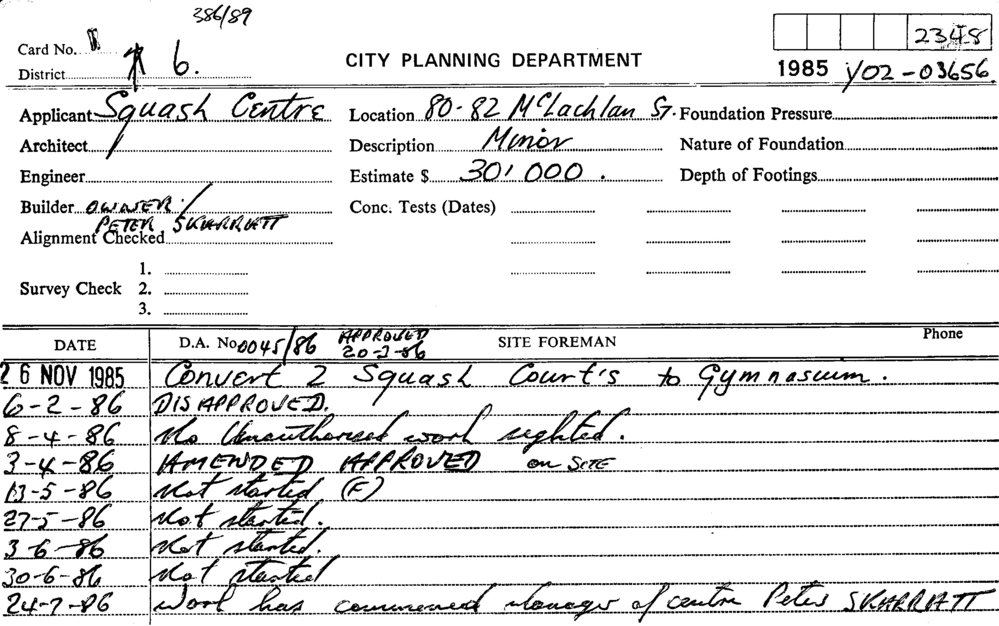 386/89
Card No.
2348
District 6.
CITY PLANNING DEPARTMENT
1985 Y02-03656.
Applicant Squash Centre Location 80-82 McLachlan St. Foundation Pressure
Architect Description Minor Nature of Foundation
Engineer Estimate $ 30,000. Depth of Footings
Builder OWNER/
PETER SKARRATT
Conc. Tests (Dates)
Alignment Checked
1.
Survey Check 2.
3.
DATE D.A. No 0045/86 APPROVED SITE FOREMAN Phone
20-3-86
26 NOV 1985 Convert 2 Squash Court's to Gymnasium.
6-2-86 DISAPPROVED.
8-4-86 No Unauthorised work sighted.
3-4-86 AMENDED APPROVED on SITE
13-5-86 Not started (F)
27-5-86 Not started.
3-6-86 Not started.
30-6-86 Not started
24-7-86 Work has commenced Manager of centre Peter SKARRATT